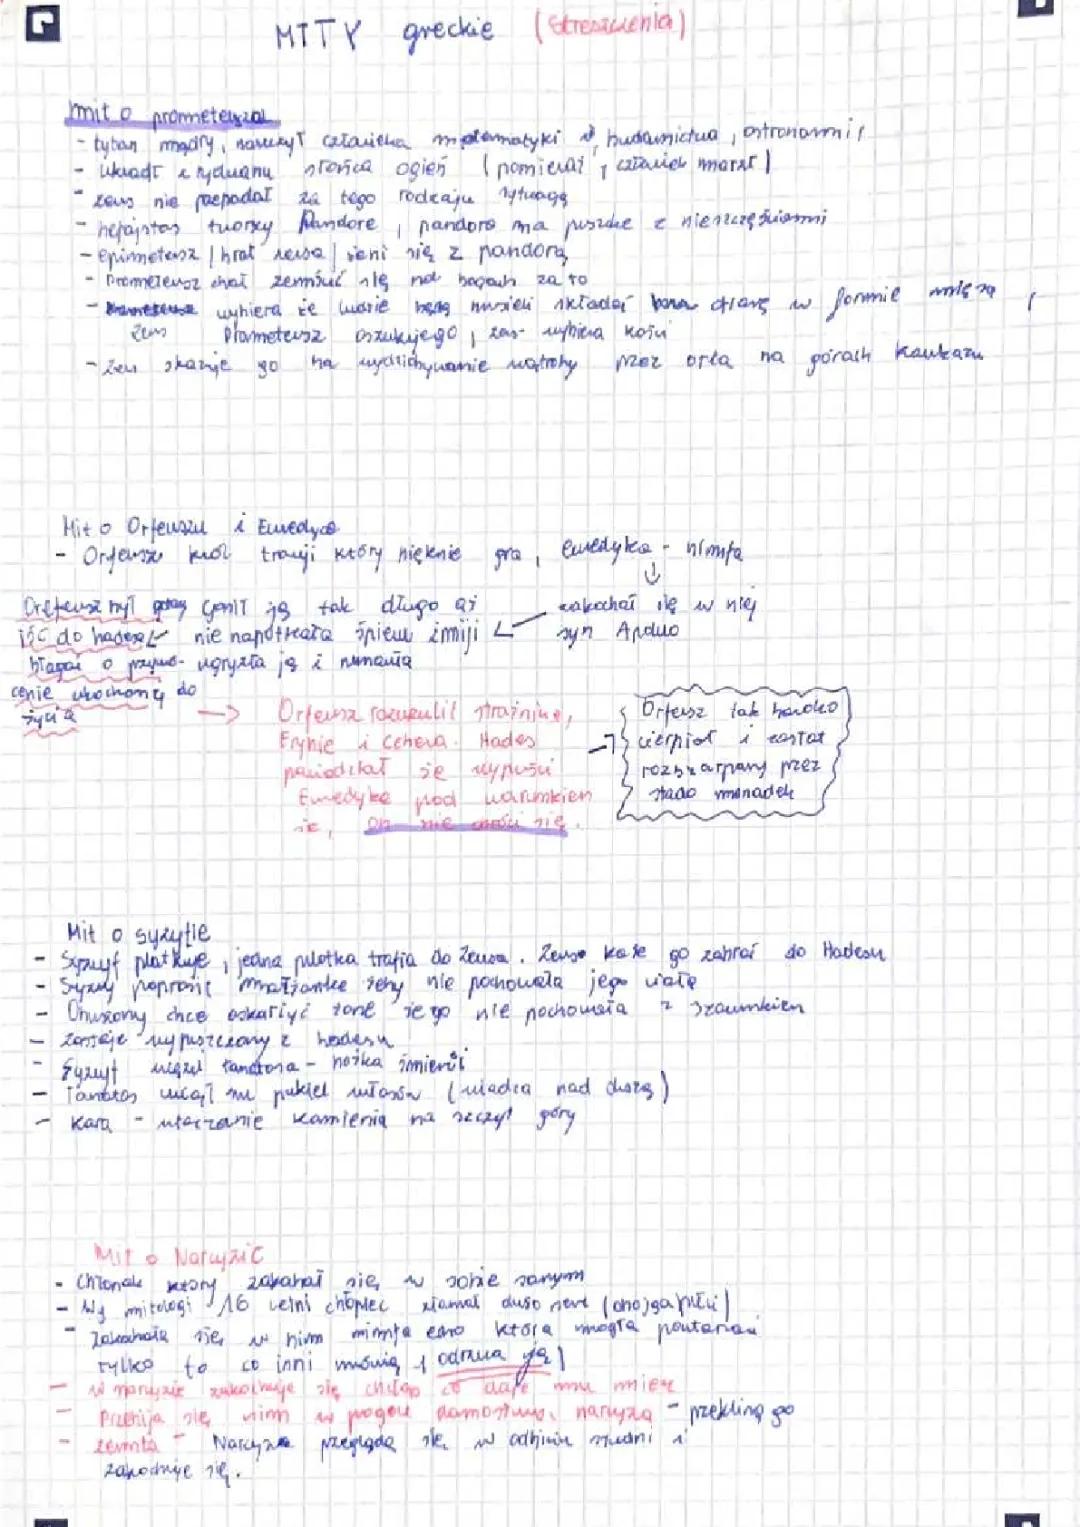 MITY greckie (streszczenia)
mit o prometeuszu
- tytan mądry, nauczył człowieka matematyki, budownictwa, astronomii
- ukradł z rydwanu słońca ogień (pomieważ, człowiek marzł)
- zeus nie przepadał za tego rodzaju sytuacją
- hefajstos tworzy Pandore, pandora ma puszke z nieszczęściami
- epimeteusz (brat zeusa) żeni się z pandorą
- Prometeusz chał zemścić się na bogach za to
- wybiera że ludzie będą musieli składać ofiarę w formie mięsa,
Zeus Prometeusz oszukuje go, zeus wybiera kości
- Zeus skazuje go na wydziobywanie wątroby przez orła na górach Kaukazu
Mit o Orfeuszu i Euredyce
- Orfeusz król tracji który pięknie gra, Euredyka - nimfa
zakochał się w niej
syn Apollo
gonił ją tak długo aż
nie napotkała śpiew żmiji
ugryzła ją i umarła
Orfeusz był gotowy
iść do hadesa
błagać o przywró-
cenie ukochanej do
życia
Orfeusz rozczulił strażników,
Erynie i Cerbera. Hades
powiedział że wypuści
Euredyke pod warunkiem
że, on nie obróci się.
Orfeusz tak bardzo
cierpiał i został
rozszarpany przez
stado menadek
Mit o syzyfie
- Syzyf plotkuje, jedna plotka trafia do Zeusa. Zeus każe go zabrać do Hadesu
- Syzyf poprosił małżonke żeby nie pochowała jego ciała
- Oburzony chce oskarżyć żonę że go nie pochowała z szacunkiem
- zostaje wypuszczony z hadesu
- Syzyf więzi tanatosa - bożka śmierci
- Tanatos uciął mu pukiel włosów (władca nad duszą)
- Kara - wtaczanie kamienia na szczyt góry
Mit o Narcyzie
- Chłopak który zakochał się w sobie samym
- Wg mitologi 16 letni chłopiec złamał dużo serc (obojga płci)
- Zakochała się w nim nimfa echo która mogła powtarzać
tylko to co inni mówią (odrzuca ją)
- w narcyzie zakochuje się chłop co daje mu miecz
- Przebija się nim w progu domostwa narcyza - przeklina go
- zemsta - Narcyz przegląda się w odbiciu studni i
zakochuje się.